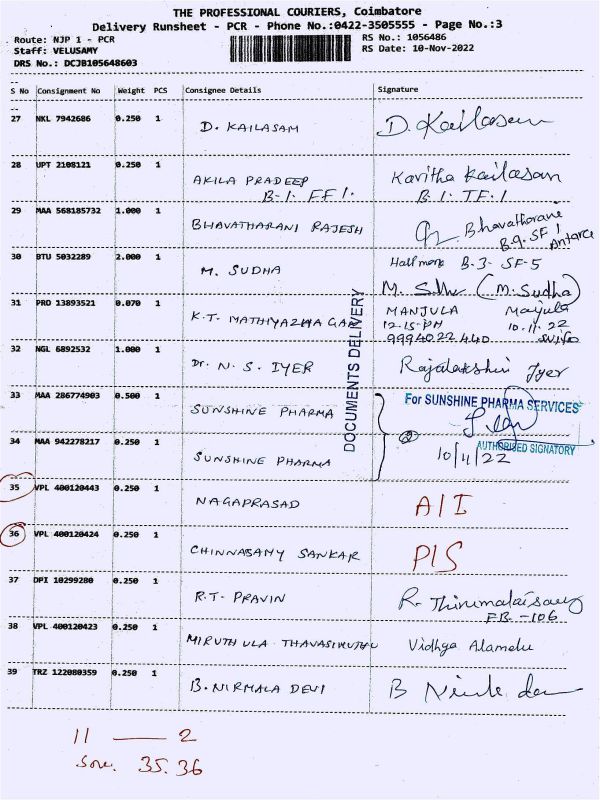 THE PROFESSIONAL COURIERS, Coimbatore
Delivery Runsheet - PCR - Phone No.:0422-3505555 - Page No.:3
Route: NJP 1 - PCR
RS No.: 1056486
Staff: VELUSAMY
RS Date: 10-Nov-2022
DRS No.: DCJB105648603
S No Consignment No Weight PCS Consignee Details Signature
27 NKL 7942686 0.250 1 D. KAILASAM D. Kailasam
28 UPT 2108121 0.250 1 AKILA PRADEEP Kavitha Kailasam
B-1. FF1. B.1. TF.1
29 MAA 568185732 1.000 1 BHAVATHARANI RAJESH Bhavatharani
B.9. SF1
Antares
30 BTU 5032289 2.000 1 M. SUDHA Hallmark B-3- SF-5
M. (M. Sudha)
31 PRO 13893521 0.070 1 K.T. MATHIYAZHAGAN MANJULA Manjula
12-15-PM 10.11.22
9994022440
DOCUMENTS DELIVERY
32 NGL 6892532 1.000 1 Dr. N. S. IYER Rajalakshmi Iyer
33 MAA 286774903 0.500 1 SUNSHINE PHARMA For SUNSHINE PHARMA SERVICES
34 MAA 942278217 0.250 1 SUNSHINE PHARMA AUTHORISED SIGNATORY
10/4/22
35 VPL 400120443 0.250 1 NAGAPRASAD A/I
36 VPL 400120424 0.250 1 CHINNASAMY SANKAR P/S
37 DPI 10299280 0.250 1 R.T. PRAVIN R. Thirumalaisamy
FB-106
38 VPL 400120423 0.250 1 MIRUTHULA THAVASIMUTHU Vidhya Alamelu
39 TRZ 122080359 0.250 1 B. NIRMALA DEVI B
11 — 2
35. 36